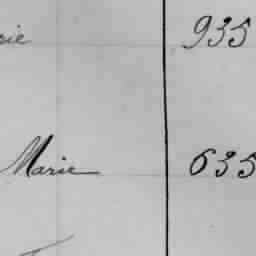 rie 935
Marie 635